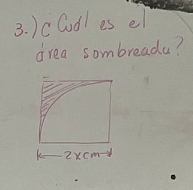 3.) ¿Cuál es el
área sombreada?
2xcm